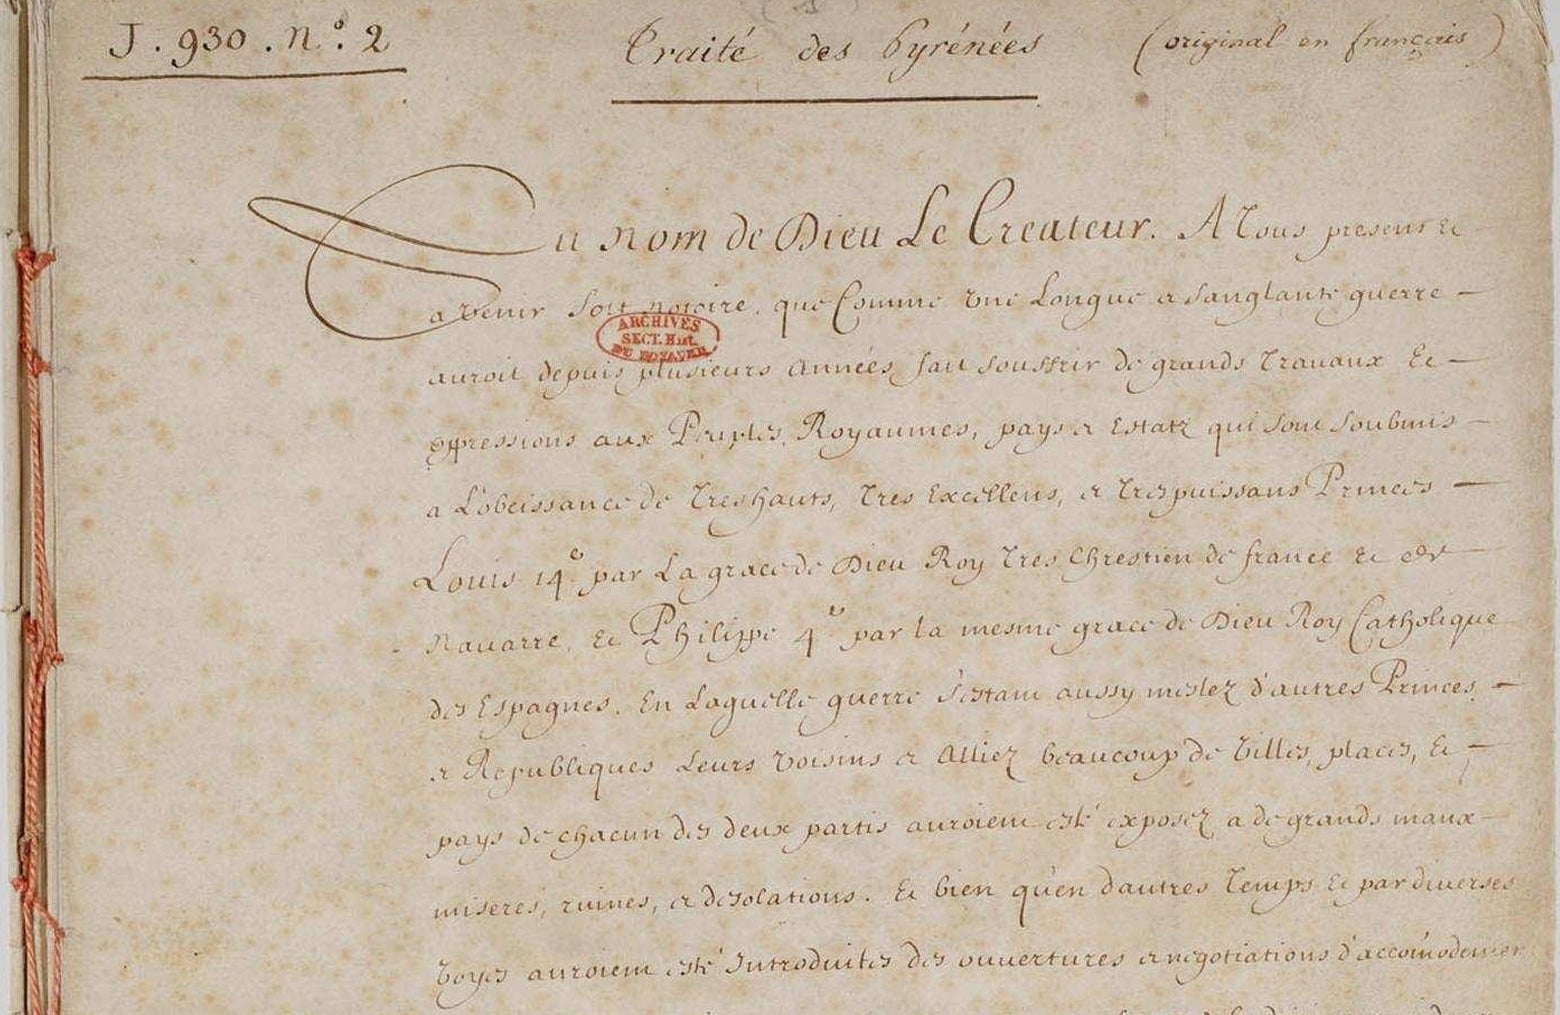 J. 930. N.° 2
Traité des Pyrénées
(original en français)
Au nom de Dieu Le Createur. A Tous presens et
a venir soit notoire, que Comme une Longue et sanglante guerre
ARCHIVES
SECT. Hist.
DU ROYAUME
auroit depuis plusieurs années fait souffrir de grands travaux et
oppressions aux Peuples, Royaumes, pays et Estatz qui sont soubmis
a L'obeissance de tres hauts, tres Excellens, et tres puissans Princes
Louis 14.e par La grace de Dieu Roy tres Chrestien de france et de
Navarre, et Philippe 4.e par la mesme grace de Dieu Roy Catholique
des Espagnes. En Laquelle guerre s'estant aussy meslez d'autres Princes
et Republiques Leurs voisins et Alliez beaucoup de villes, places, et
pays de chacun des deux partis auroient esté exposez a de grands maux
miseres, ruines, et desolations. Et bien qu'en d'autres temps et par diverses
voyes auroient esté Introduites des ouvertures et negotiations d'accōmodement